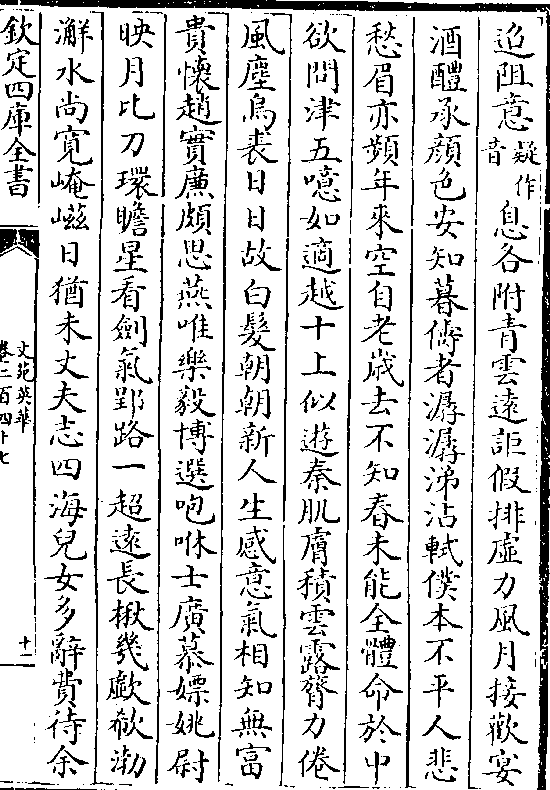 迢阻意疑作音息各附青雲遠詎假排虛力風月接歡宴
酒醴承顔色安知暮儔者潺潺涕沾軾僕本不平人悲
愁眉亦顰年來空自老歳去不知春未能全體命於中
欲問津五噫如適越十上似遊秦肌膚積雲露膂力倦
風塵烏裘日日故白髮朝朝新人生感意氣相知無富
貴懷趙實亷頗思燕唯樂毅博選咆咻士廣慕嫖姚尉
映月比刀環瞻星看劍氣郢路一超遠長楸幾歔欷渤
澥水尚寛崦嵫日猶未丈夫志四海兒女多辭費待余
欽定四庫全書
文苑英華
卷二百四十七
十二